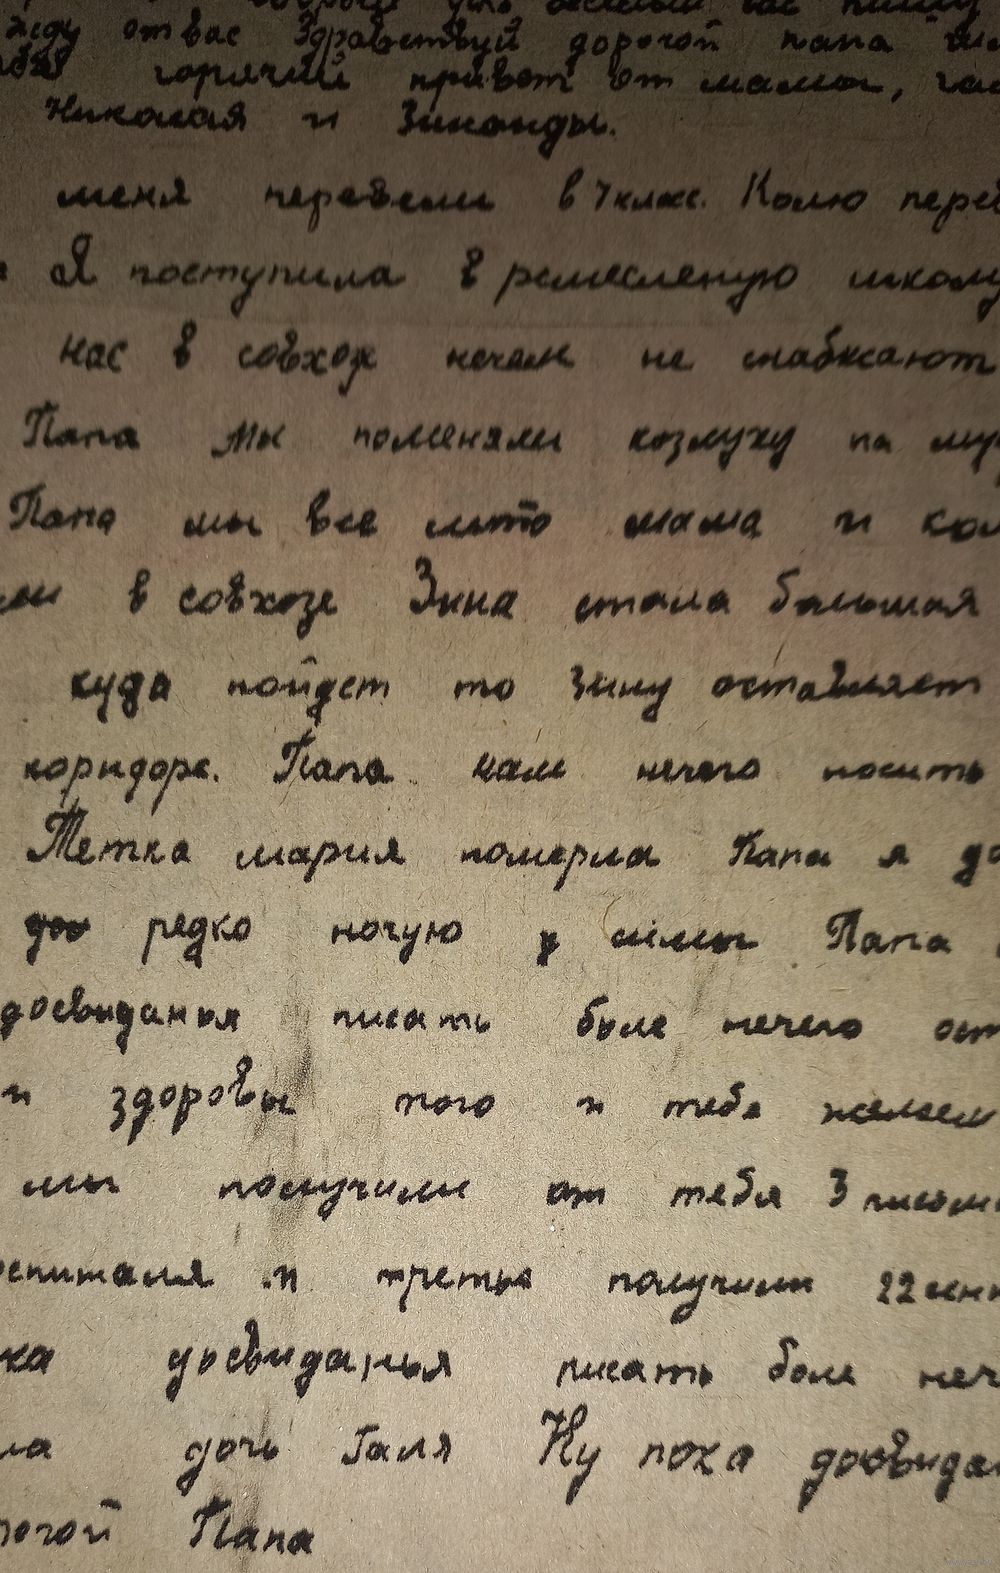 добрый день веселый час пишу
жду от вас Здравствуй дорогой папа
горячий привет от мамы,
Николая и Зинаиды.
меня перевели в 7 класс. Колю перев
Я поступила в ремесленую школу
нас в совхозе нечем не снабжают
Папа мы поменяли козлуху на му
Папа мы все лето мама и кол
в совхозе Зина стала большая
куда пойдет то Зину оставляет
коридоре. Папа нам нечего носить
Тетка мария померла Папа я до
редко ночую у мамы Папа
досвиданья писать боле нечего ост
и здоровы того и тебе желаем
мы получили от тебя 3 письма
оспиталя и третье получили 22 сен
ка досвиданья писать боле неч
ла дочь Галя Ну пока досвидан
рогой Папа